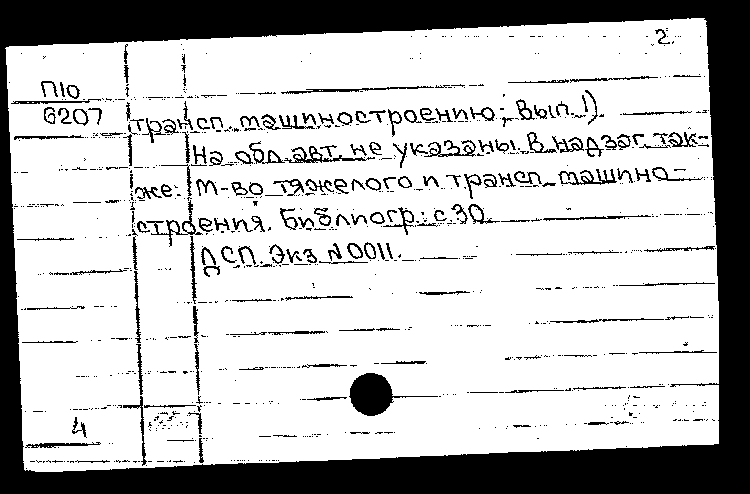 2.
П10
6207
трансп. машиностроению; Вып. 1).
На обл. авт. не указаны. В надзаг. так-
же: М-во тяжелого и трансп. машино-
строения. Библиогр.: с 30.
ДСП. Экз. N 0011.
4